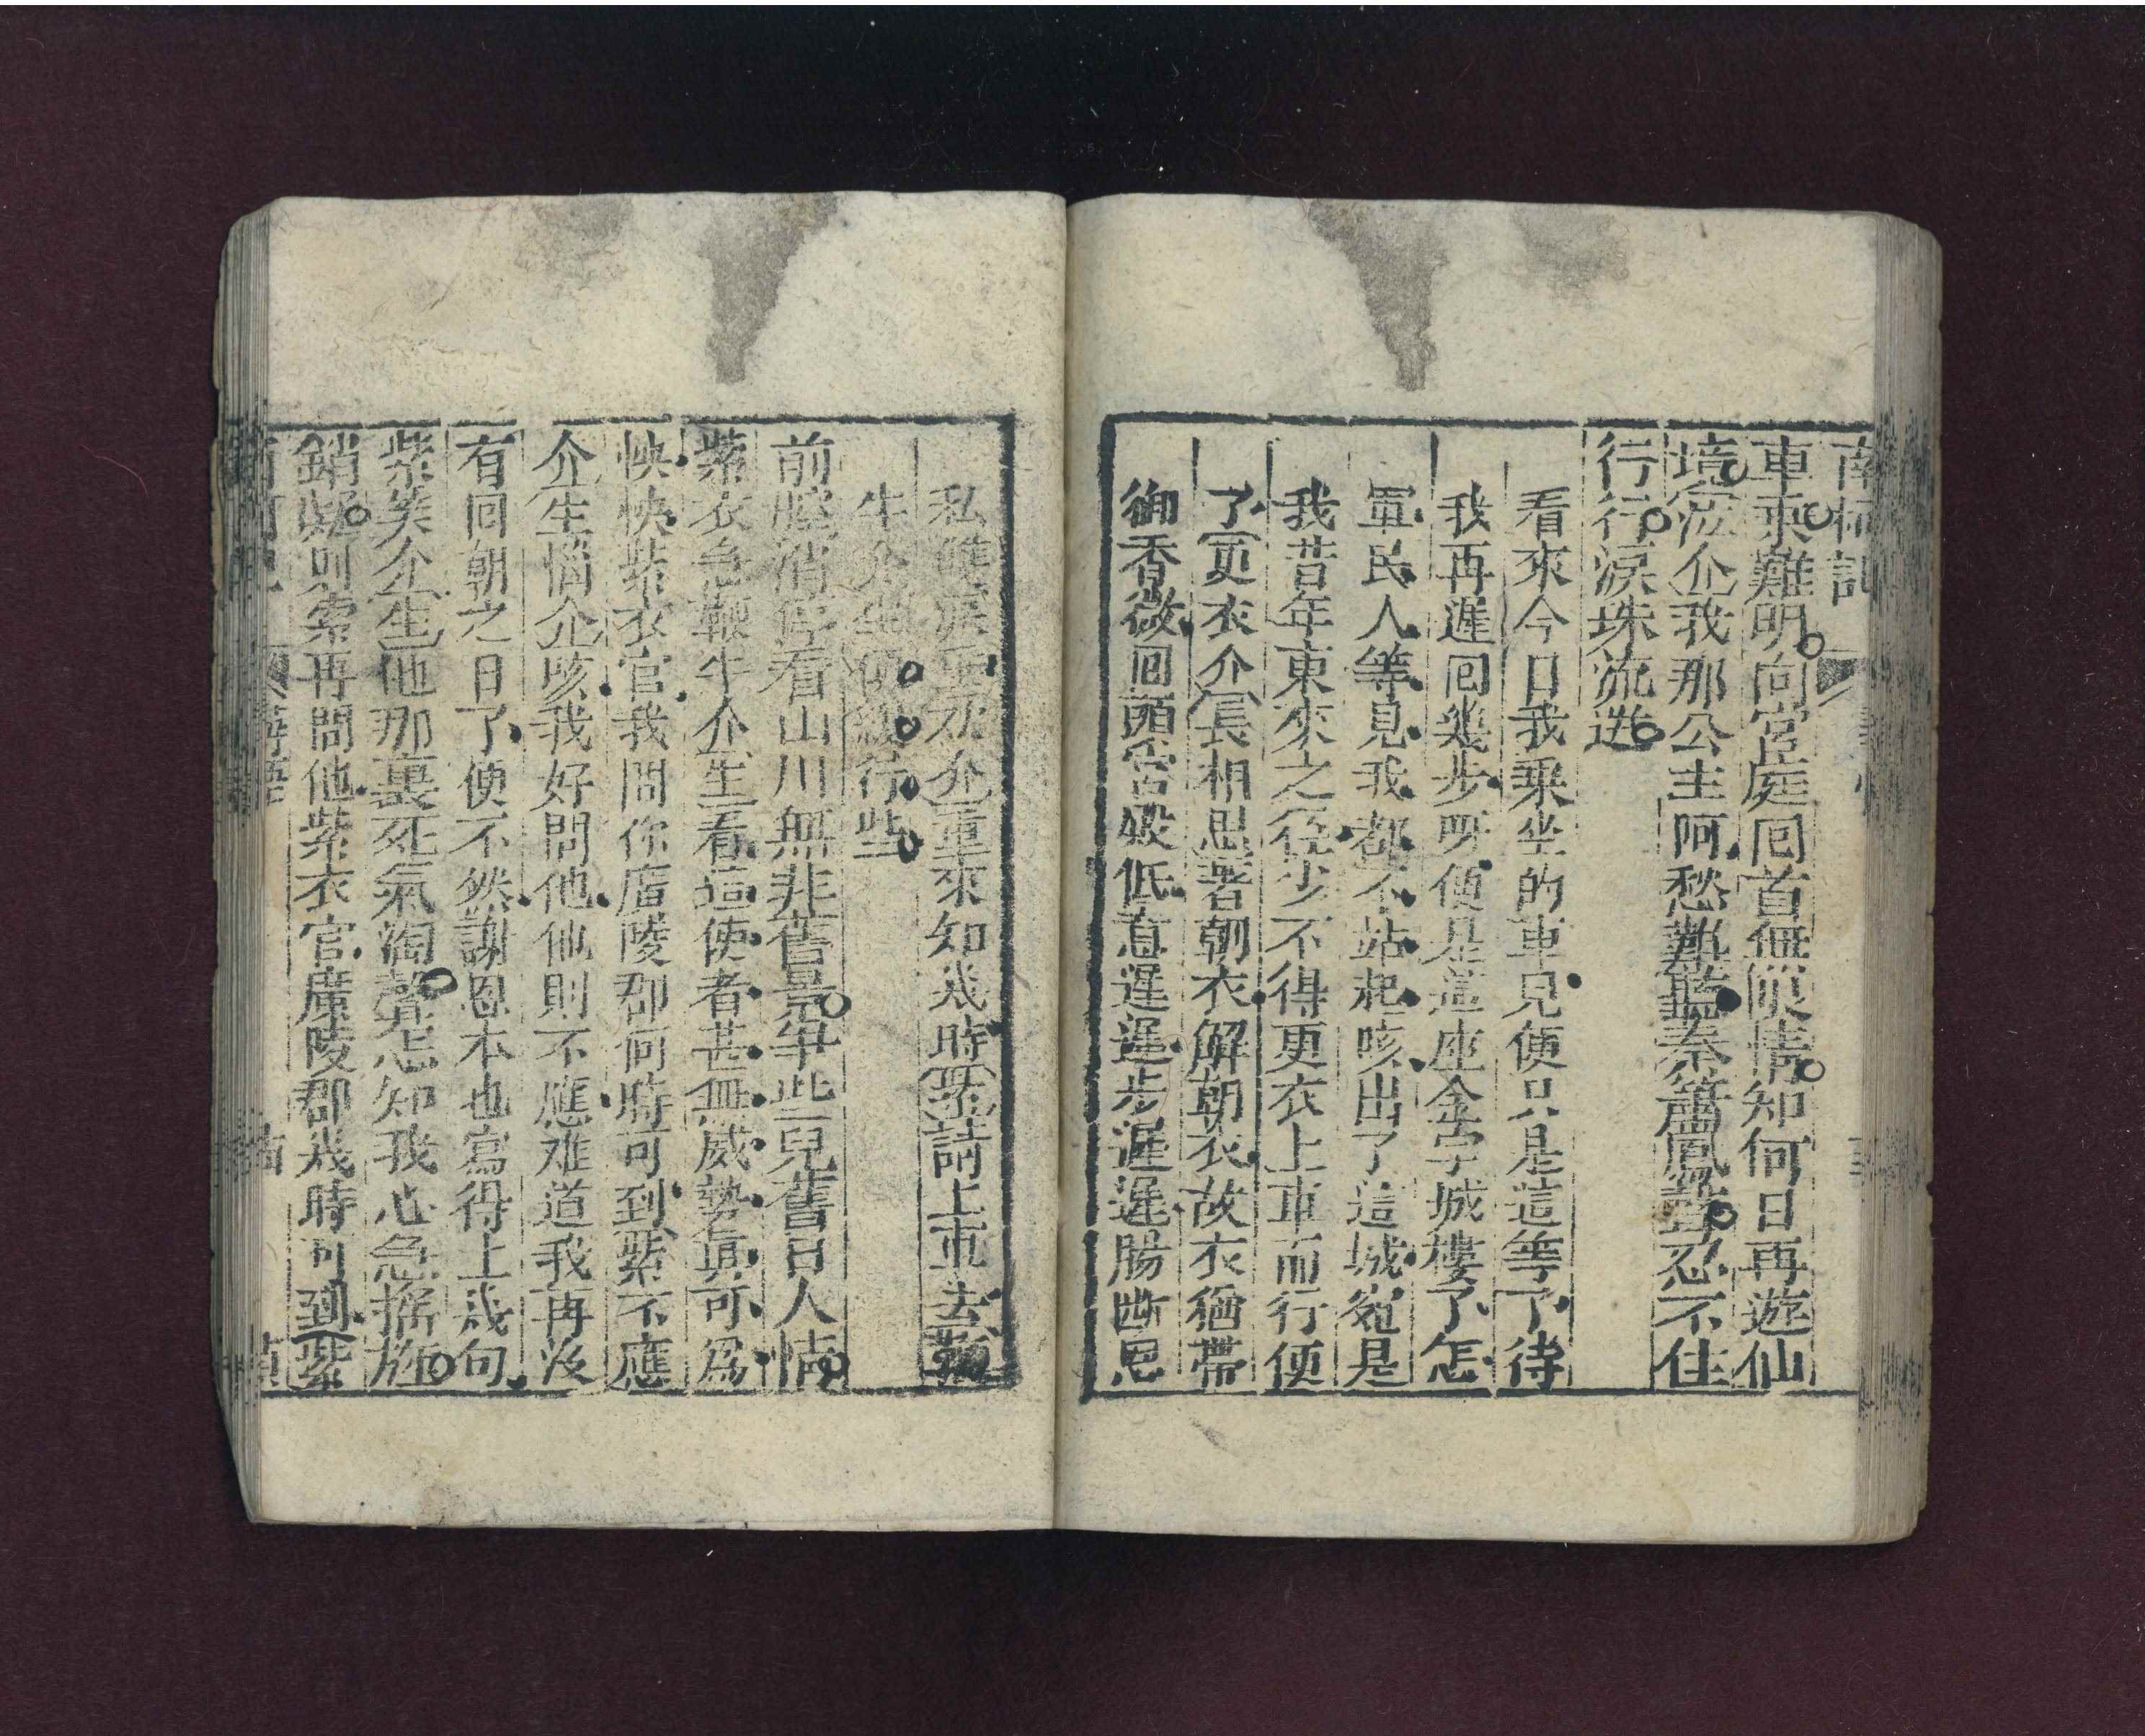 南柯記
車乘難明向宮庭回首無限情知何日再遊仙
境泣介我那公主阿愁難聽秦簫鳳聲忍不住
行行淚珠流迸
看來今日我乘坐的車兒便只是這等了待
我再遲回幾步呀便是這座金字城樓了怎
軍民人等見我都不站起咳出了這城宛是
我昔年東來之徑少不得更衣上車而行便
了更衣介長相思著朝衣解朝衣故衣猶帶
御香微回頭宮殿低意遲遲步遲遲腸斷恩
私雙淚垂衆介重來知幾時衆請上車去鞭
牛介緩行些
前腔消停看山川無非舊景爭些兒舊日人情
紫衣急鞭牛介生看這使者甚無威勢真可為
怏怏紫衣官我問你廣陵郡何時可到紫不應
介生惱介咳我好問他他則不應难道我再没
有回朝之日了便不然謝恩本也寫得上幾句
紫笑介生他那裏死氣淘聲怎知我心急搖旌
銷凝則索再問他紫衣官廣陵郡幾時可到紫